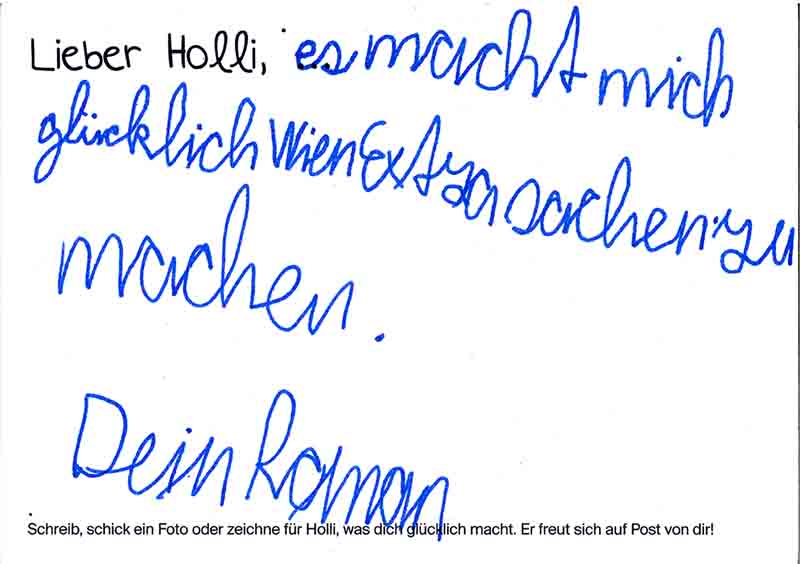 Lieber Holli, es macht mich
glücklich Wien Extra sachen zu
machen.
Dein Roman
Schreib, schick ein Foto oder zeichne für Holli, was dich glücklich macht. Er freut sich auf Post von dir!